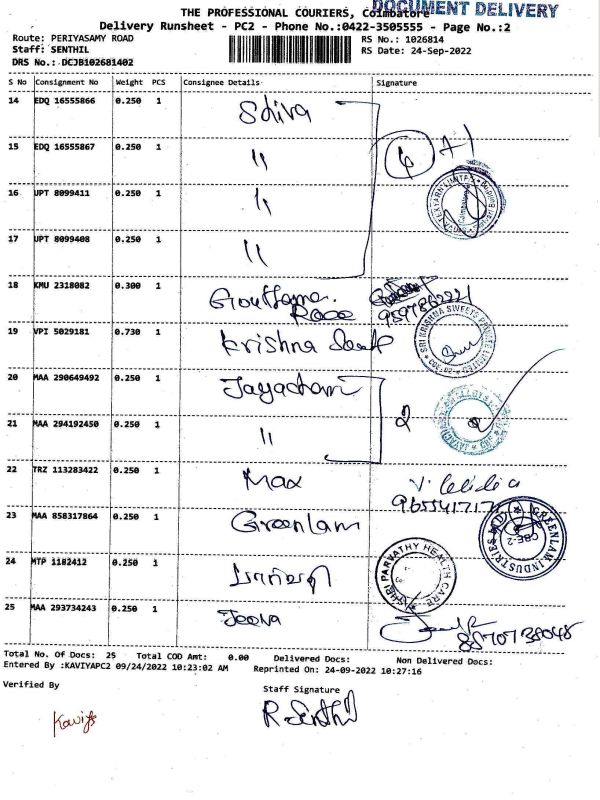 DOCUMENT DELIVERY
THE PROFESSIONAL COURIERS, Coimbatore
Delivery Runsheet - PC2 - Phone No.:0422-3505555 - Page No.:2
Route: PERIYASAMY ROAD RS No.: 1026814
Staff: SENTHIL RS Date: 24-Sep-2022
DRS No.: DCJB102681402
S No Consignment No Weight PCS Consignee Details Signature
14 EDQ 16555866 0.250 1 Shiva
15 EDQ 16555867 0.250 1 "
16 UPT 8099411 0.250 1 "
17 UPT 8099408 0.250 1 "
18 KMU 2318082 0.300 1
19 VPI 5029181 0.730 1 Krishna
SRI KRISHNA SWEETS PRIVATE LIMITED
20 MAA 290649492 0.250 1
21 MAA 294192450 0.250 1 " 2
22 TRZ 113283422 0.250 1 Max
23 MAA 858317864 0.250 1 Greenlam
GREENLAM INDUSTRIES LTD CBE-2
24 MTP 1182412 0.250 1
SHRI PARVATHY HEALTH CARE
25 MAA 293734243 0.250 1 Jeeva
Total No. Of Docs: 25 Total COD Amt: 0.00 Delivered Docs: Non Delivered Docs:
Entered By :KAVIYAPC2 09/24/2022 10:23:02 AM Reprinted On: 24-09-2022 10:27:16
Verified By Staff Signature
Kaviya R. Senthil